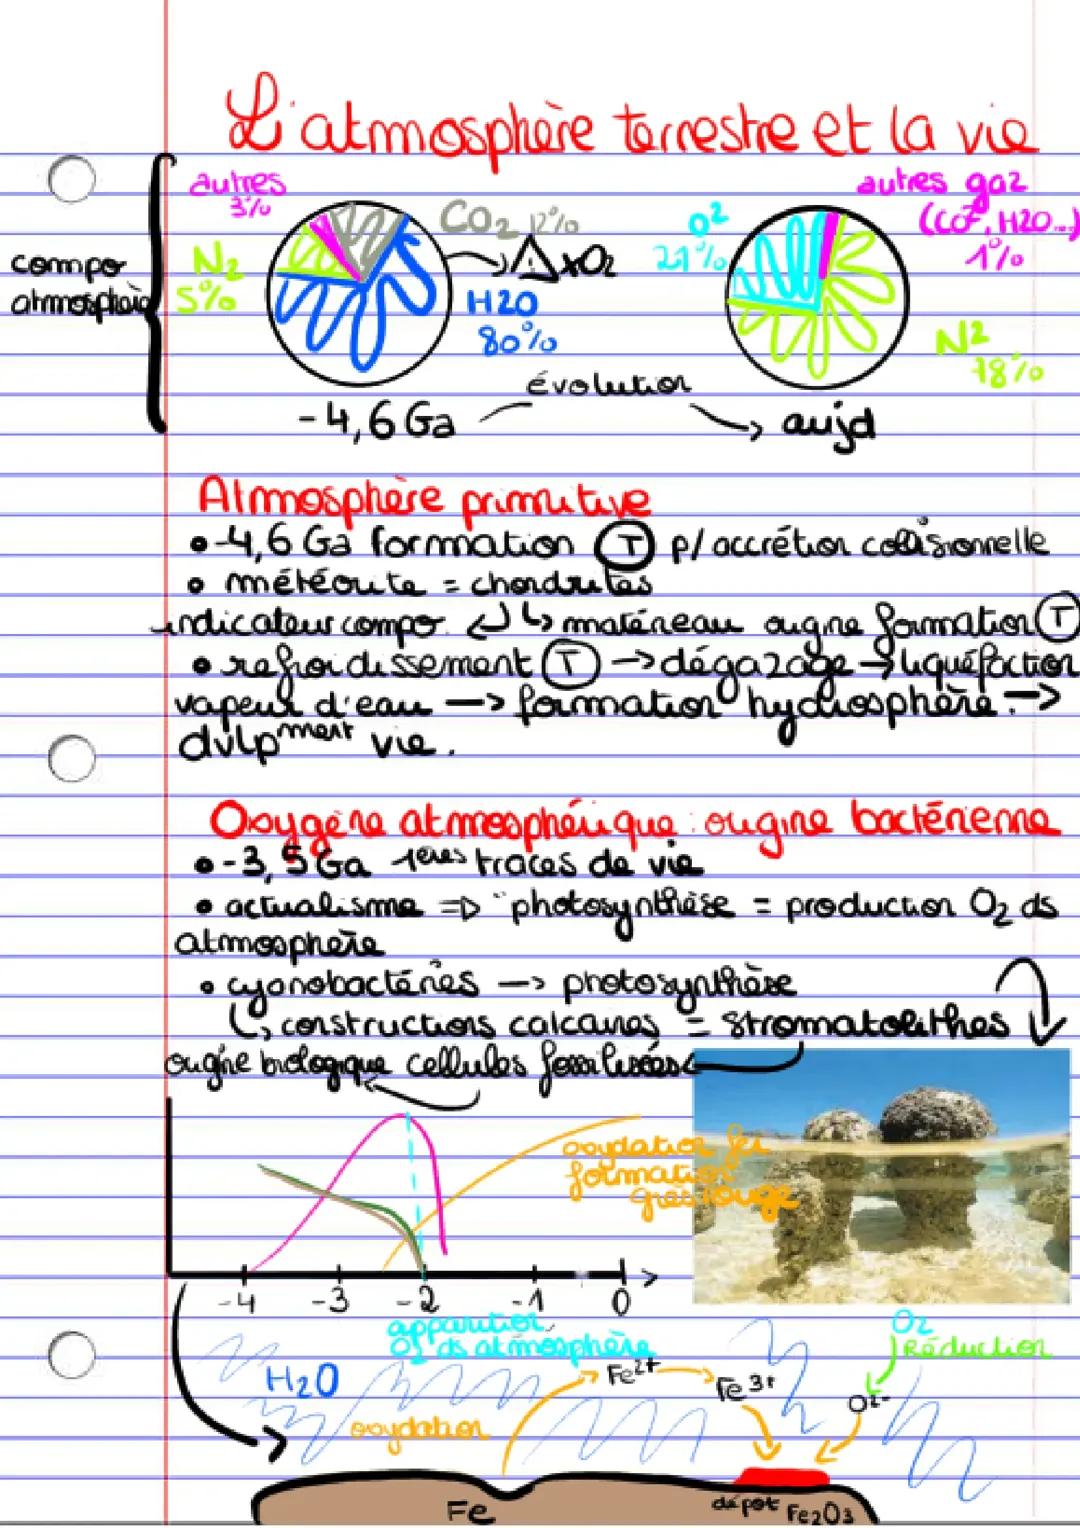 L'atmosphère terrestre et la vie
autres
3%
CO2 12%
autres gaz
(CO2, H2O...)
1%
O2
21%
compo
atmosphère
N2
5%
⚠ xO2
H2O
80%
N2
78%
évolution
-4,6 Ga
→ aujd
Atmosphère primitive
• -4,6 Ga formation Ⓣ p/ accrétion collisionnelle
• météorite = chondrites
indicateur compo. ↲ ↳ matéreau origine formation Ⓣ
• refroidissement Ⓣ → dégazage → liquéfaction
vapeur d'eau → formation hydrosphère. →
dvlpment vie.
Oxygène atmosphérique : origine bactérienne
• -3,5 Ga 1ères traces de vie
• actualisme => photosynthèse = production O2 ds
atmosphère
• cyanobactéries → photosynthèse
↳ constructions calcaires = stromatolithes
origine biologique cellules fossilisées
oxydation fer
formation
grès rouge
-4 -3 -2 -1 0
apparition
O2 ds atmosphère
O2
Réduction
H2O
Fe2+
Fe3+
O2-
oxydation
Fe
dépôt Fe2O3